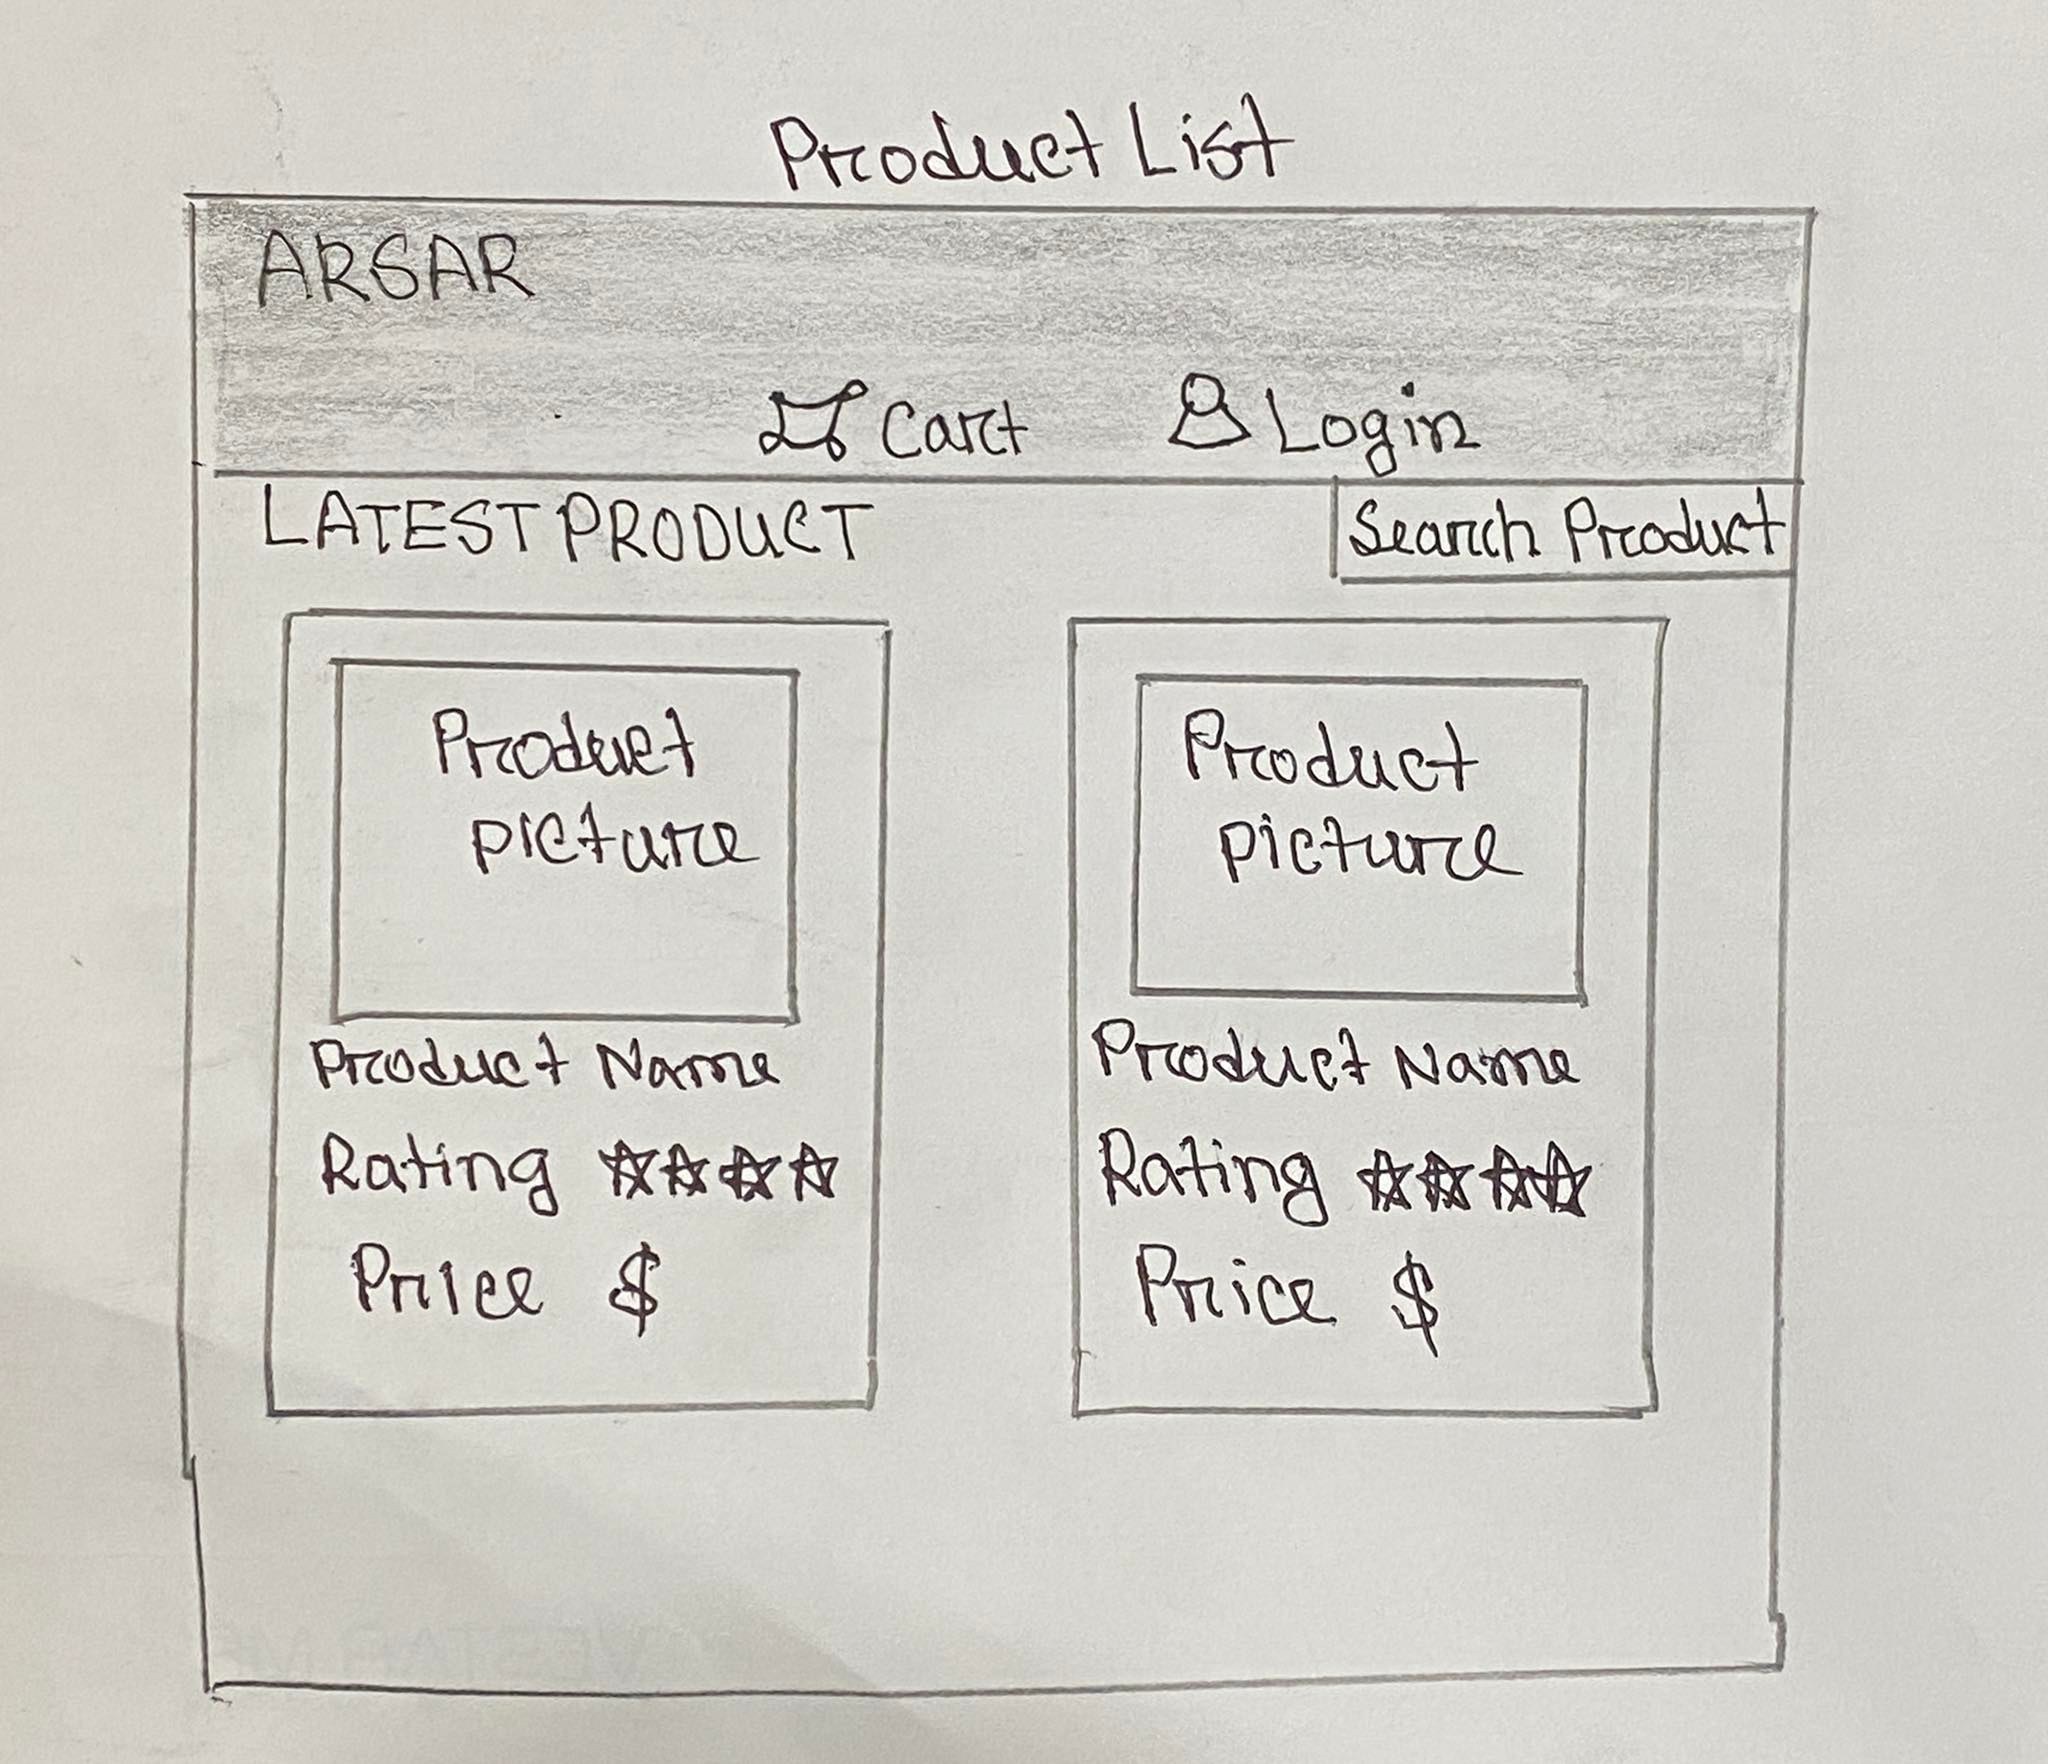 Product List
ARSAR
Cart Login
LATEST PRODUCT Search Product
Product
picture
Product Name
Rating ☆☆☆☆
Price $
Product
picture
Product Name
Rating ☆☆☆☆
Price $